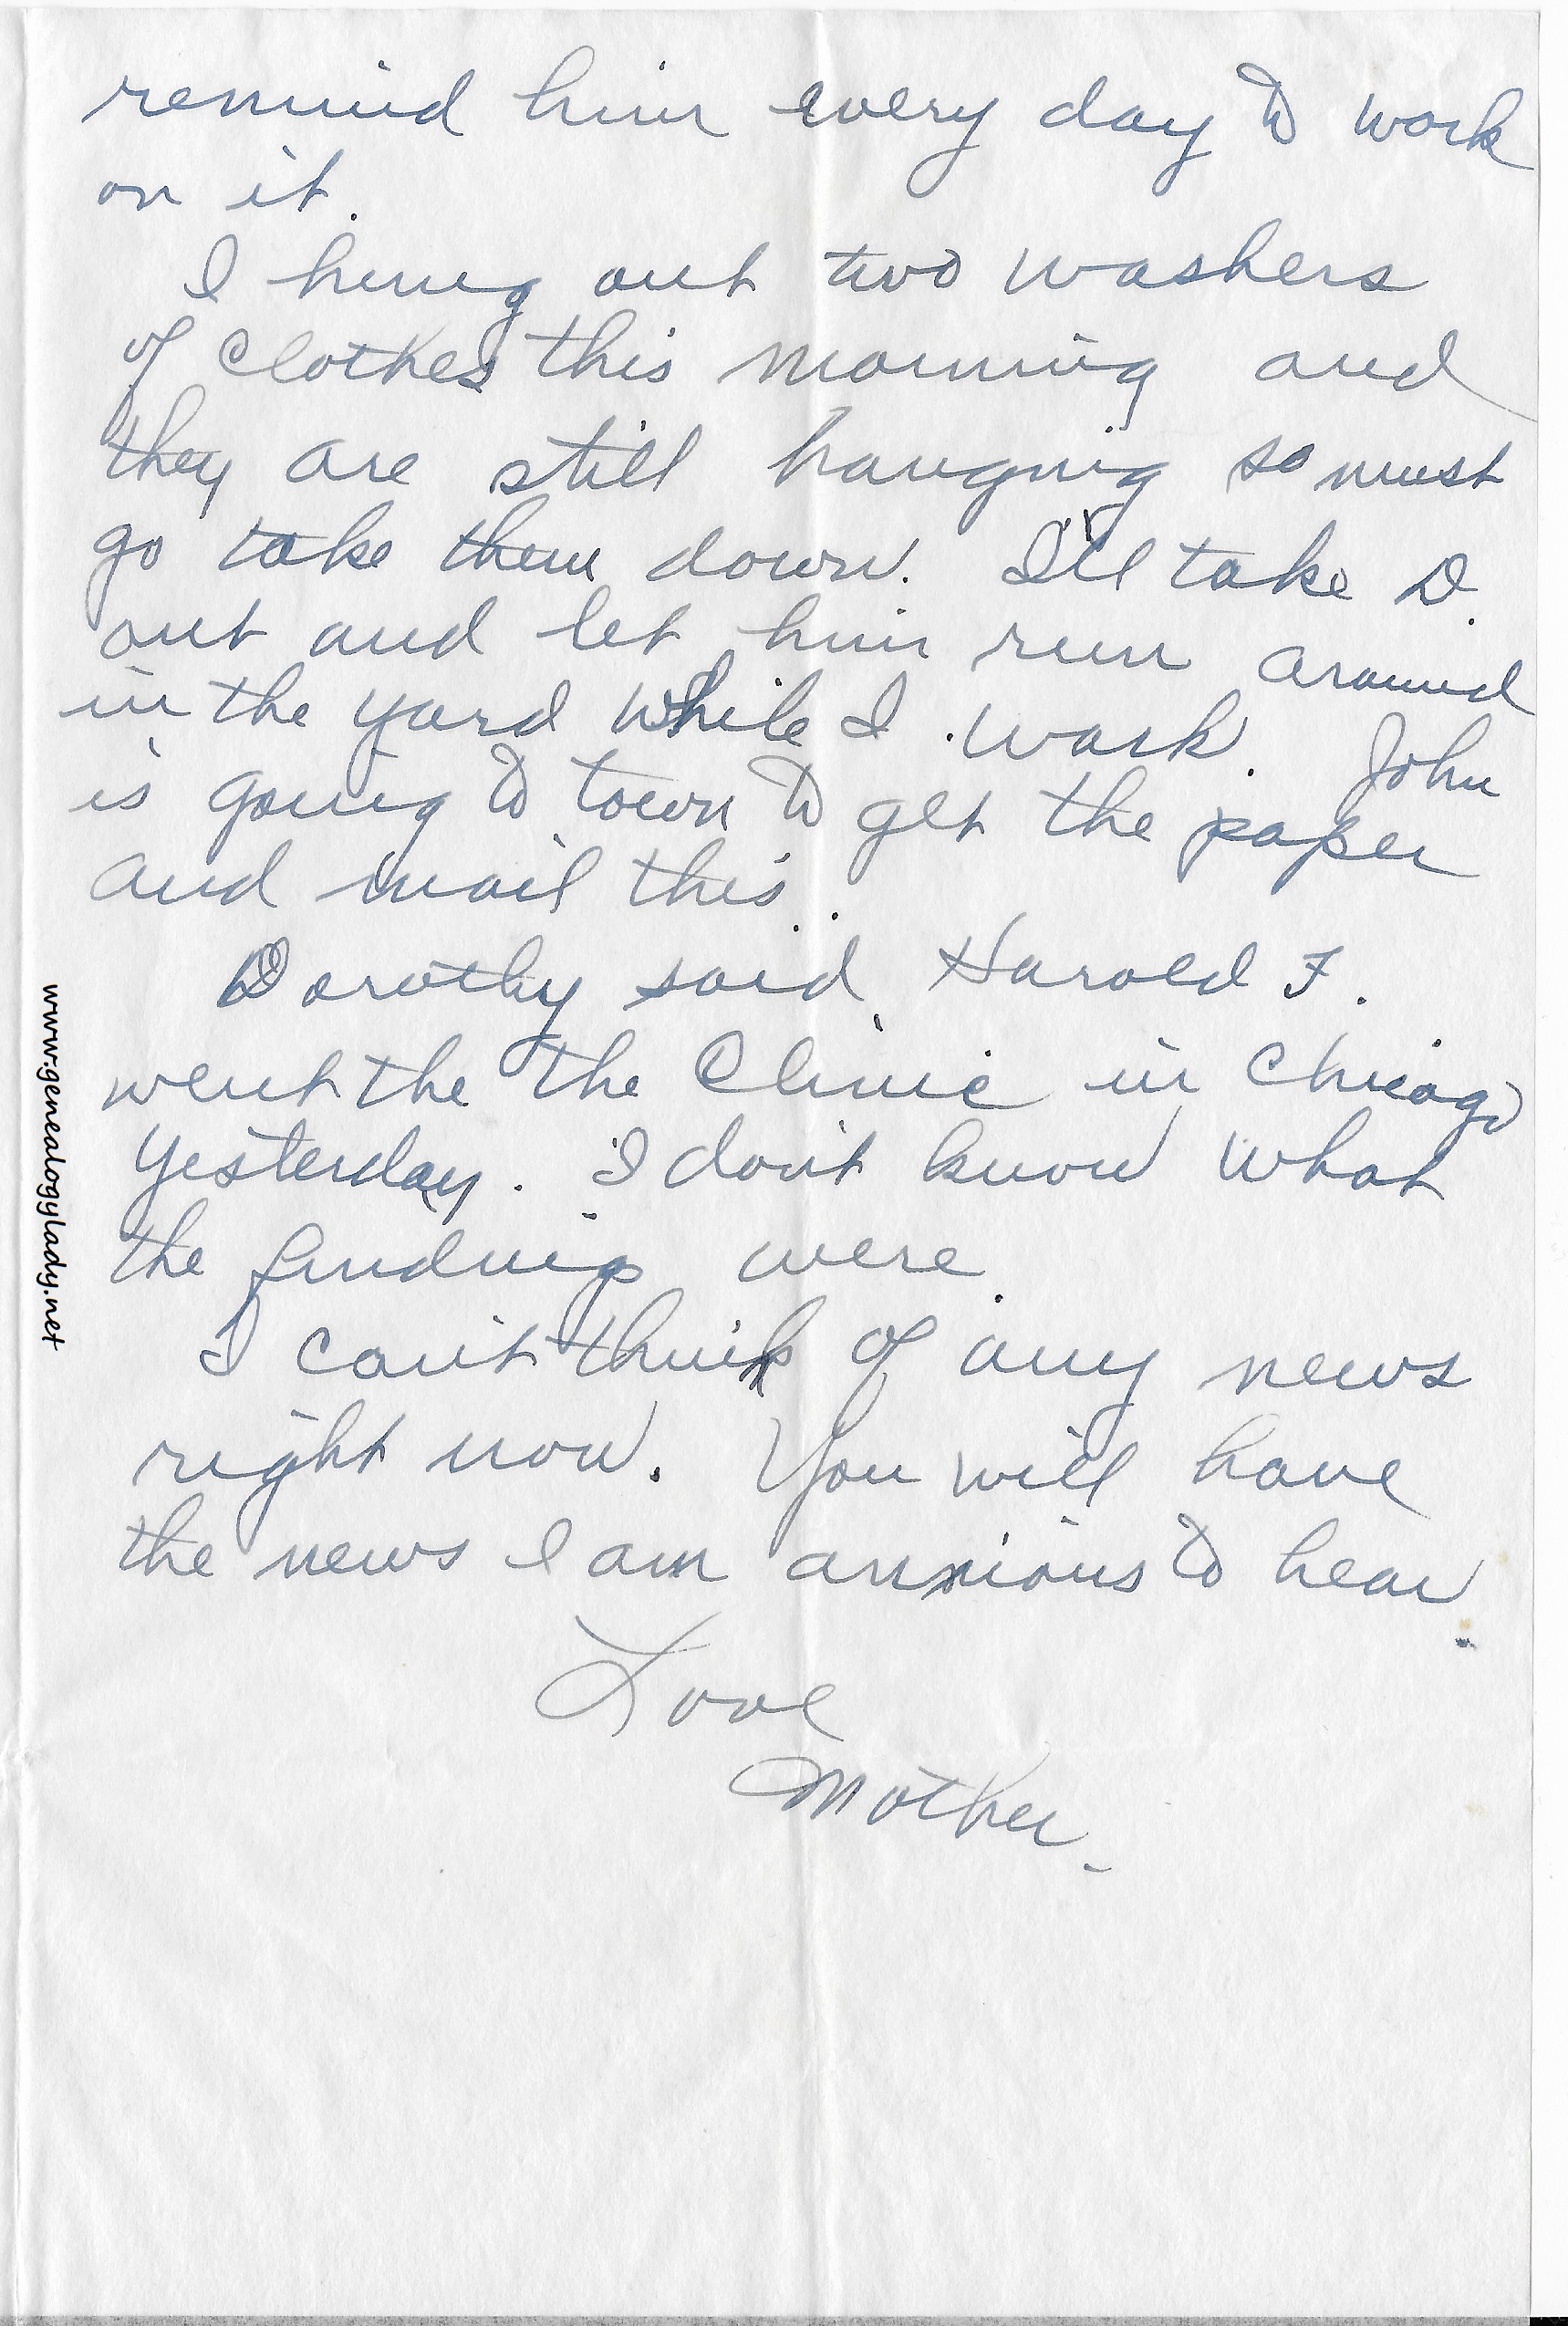 remind him every day to work
on it.
I hung out two washers
of clothes this morning and
they are still hanging so must
go take them down. I'll take D.
out and let him run around
in the yard while I work. John
is going to town to get the paper
and mail this.
Dorothy said Harold F.
went the the Clinic in Chicago
yesterday. I don't know what
the findings were.
I can't think of any news
right now. You will have
the news I am anxious to hear.
Love
Mother.
www.genealogylady.net